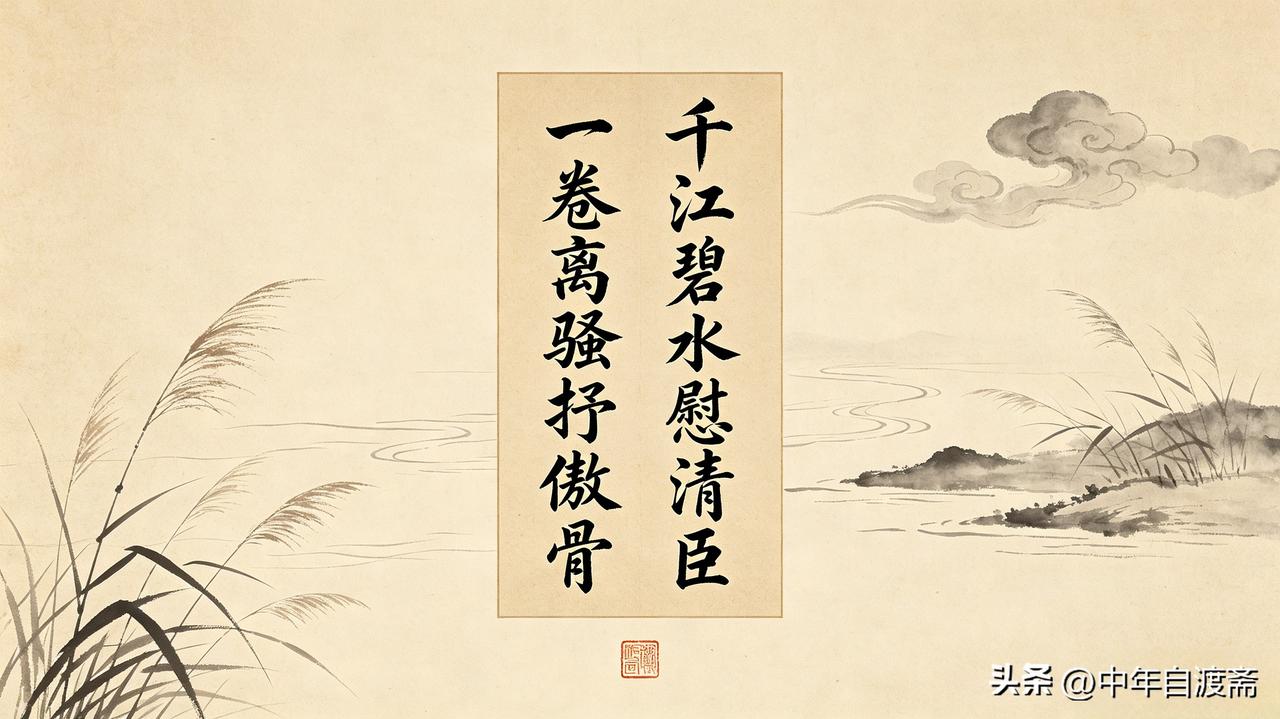 千江碧水慰清臣
一卷离骚抒傲骨
头条 @中年自渡斋